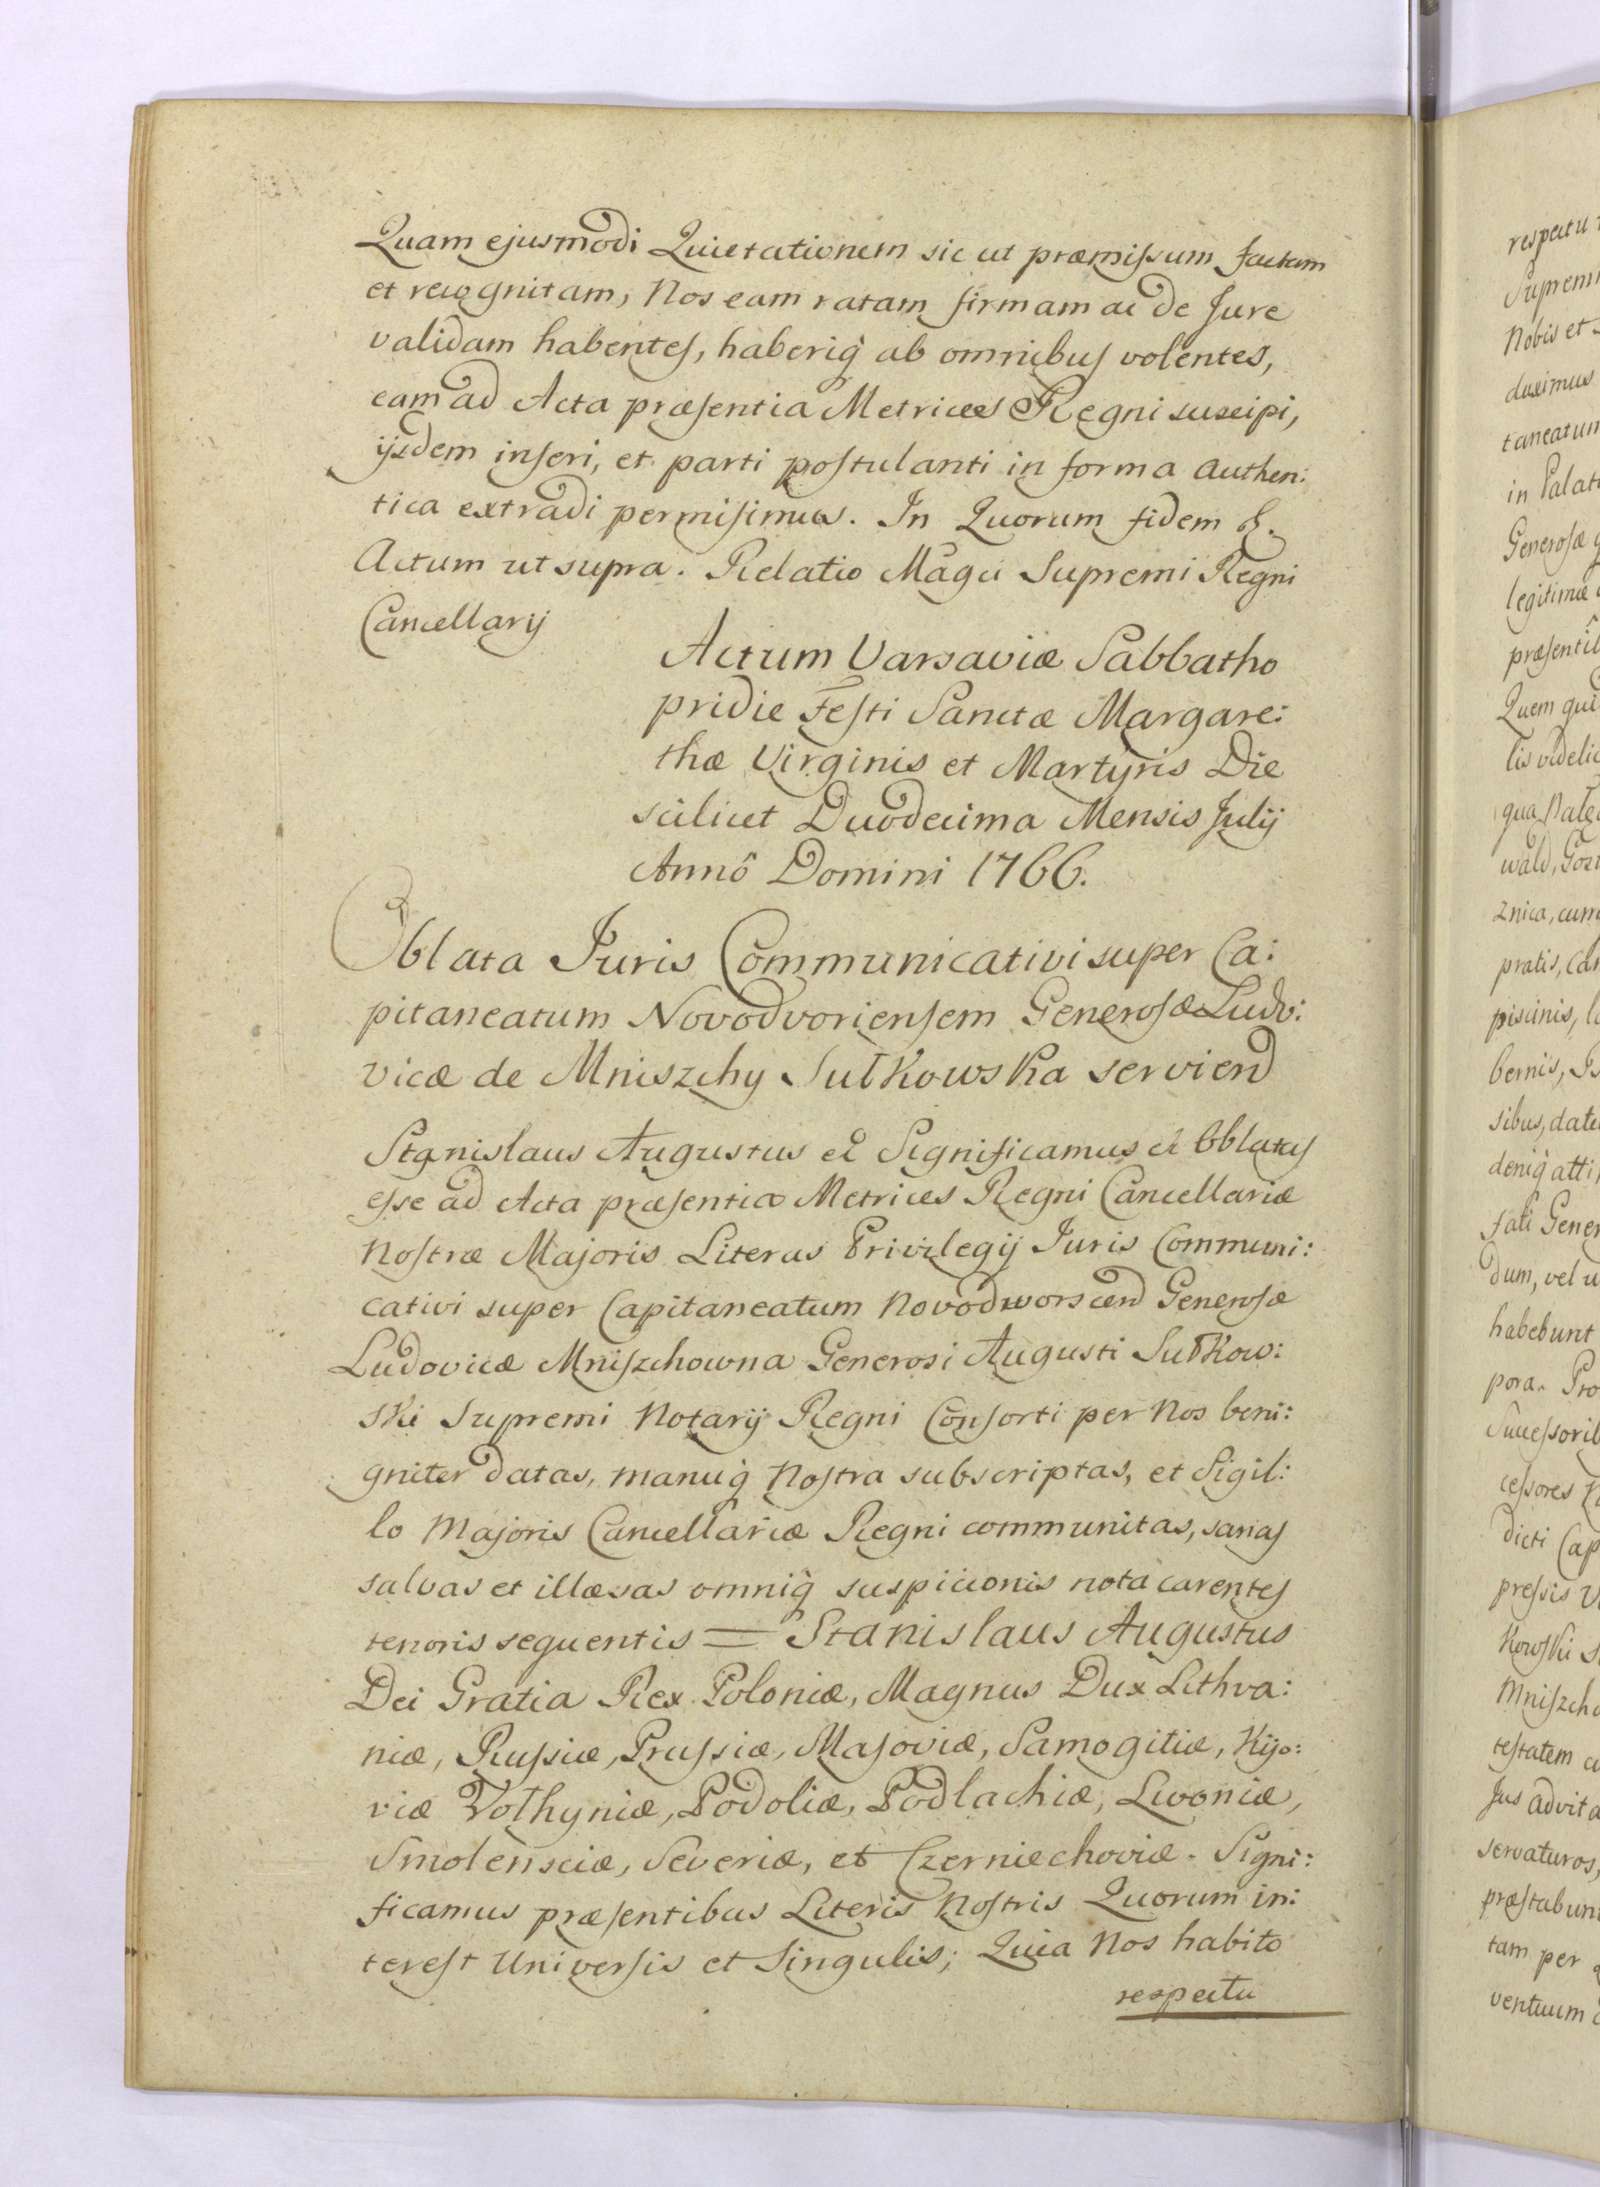 Quam ejusmodi Quietationem sic ut præmissum factam
et recognitam, Nos eam ratam firmam ac de Jure
validam habentes, haberiq̀ ab omnibus volentes,
eam ad Acta præsentia Metrices Regni suscipi,
ijsdem inseri, et parti postulanti in forma authen:
tica extradi permisimus. In Quorum fidem &.
Actum ut supra. Relatio Magci Supremi Regni
Cancellarij
Actum Varsaviæ Sabbatho
pridie Festi Sanctæ Margare:
thæ Virginis et Martyris Die
scilicet Duodecima Mensis Julij
Annô Domini 1766.
Oblata Juris Communicativi super Ca:
pitaneatum Novodvoriensem Generosæ Ludo:
vicæ de Mniszchy Sułkowska serviend
Stanislaus Augustus et Significamus et Oblatas
esse ad Acta præsentia Metrices Regni Cancellariæ
Nostræ Majoris Literas Privilegij Juris Communi:
cativi super Capitaneatum Novodworscend Generosæ
Ludovicæ Mniszchowna Generosi Augusti Sułkow:
ski Supremi Notarij Regni Consorti per Nos beni:
gniter datas, manuq̀ Nostra subscriptas, et Sigil:
lo Majoris Cancellariæ Regni communitas, sanas
salvas et illæsas omniq̀ suspicionis nota carentes
tenoris sequentis = Stanislaus Augustus
Dei Gratia Rex Poloniæ, Magnus Dux Lithva:
niæ, Russiæ, Prussiæ, Masoviæ, Samogitiæ, Kijo:
viæ Vołhyniæ, Podoliæ, Podlachiæ, Livoniæ,
Smolensciæ, Severiæ, et Czerniechoviæ. Signi:
ficamus præsentibus Literis Nostris Quorum in:
terest Universis et Singulis; Quia Nos habito
respectu
respectu
Nobis et
duximus
in Palat
Generosæ
legitimæ
Quem
wald,
znica, cum
pratis,
piscinis,
bernis,
sibus,
deniq̀
dum, vel
habebunt
pora. Pro
cessores
dicti Cap
pressis
kowski
testatem
Jus advita
servaturos,
tam per